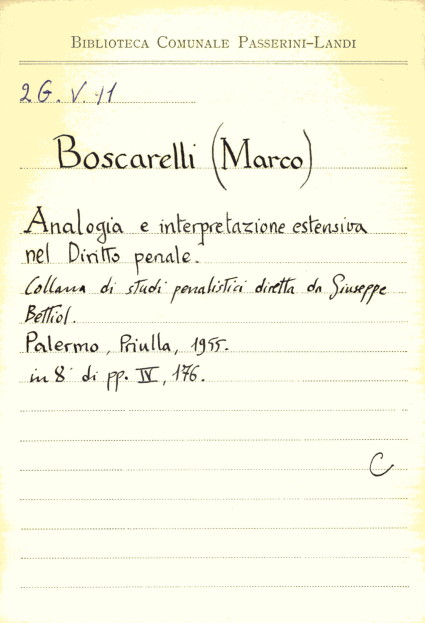 BIBLIOTECA COMUNALE PASSERINI-LANDI
2G. V. 11
Boscarelli (Marco)
Analogia e interpretazione estensiva
nel Diritto penale.
Collana di studi penalistici diretta da Giuseppe
Bettiol.
Palermo, Priulla, 1955.
in 8° di pp. IV, 176.
C